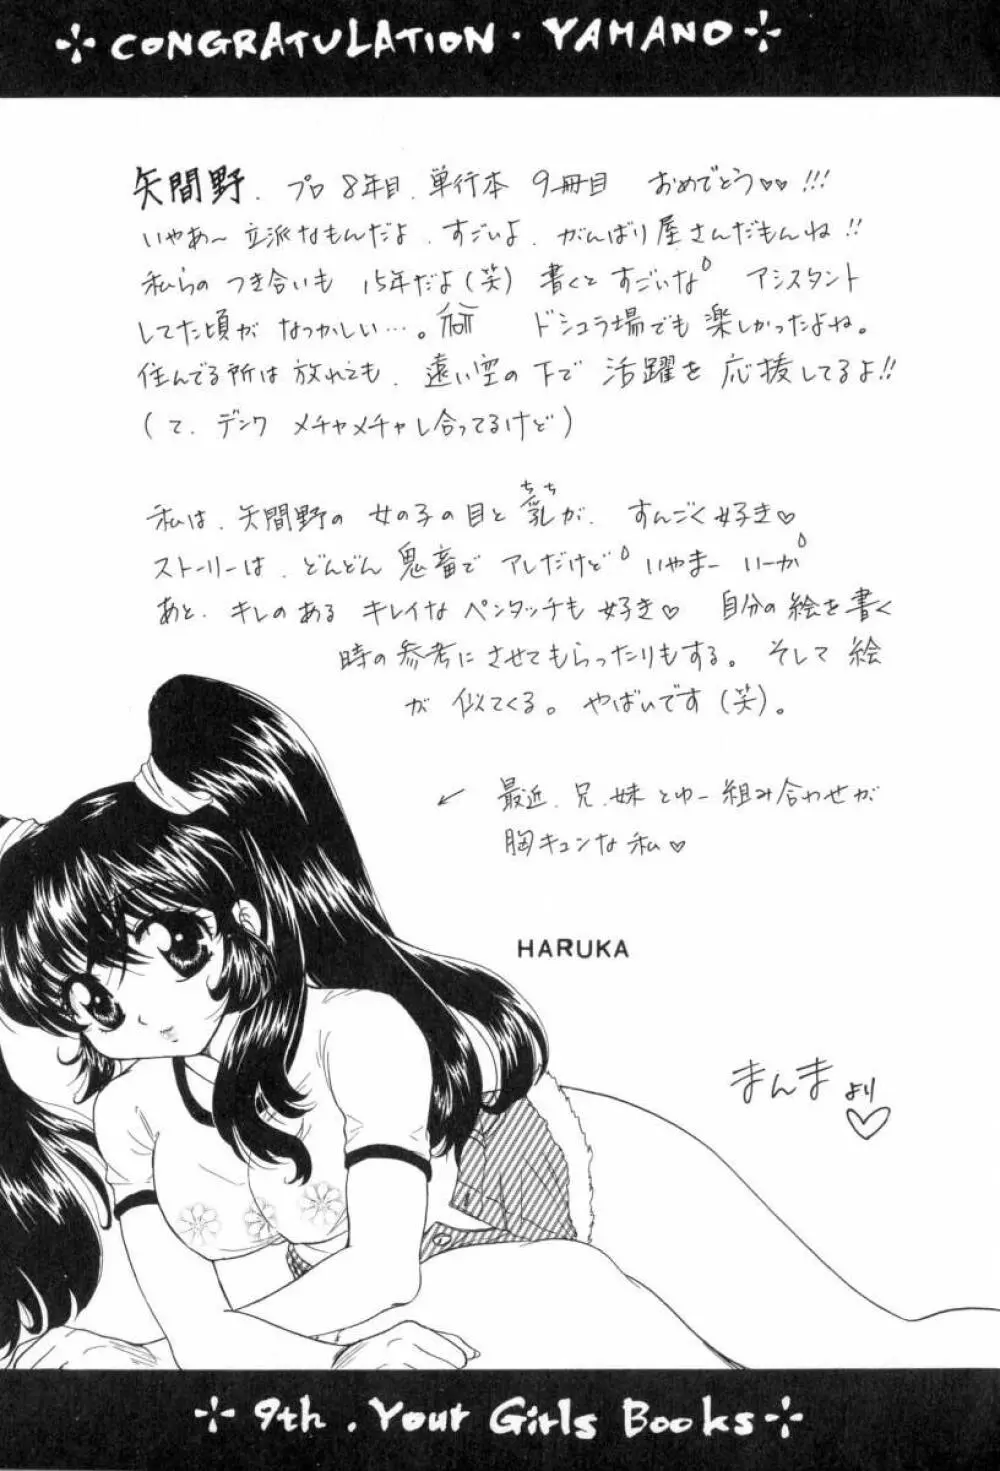 CONGRATULATION・YAMANO
矢間野、プロ8年目、単行本 9冊目 おめでとう♡♡!!!
いやあ〜立派なもんだよ、すごいよ、がんばり屋さんだもんね!!
私らのつき合いも 15年だよ(笑)書くとすごいな アシスタント
してた頃が なつかしい…。 ドシュラ場でも楽しかったよね。
住んでる所は放れても、遠い空の下で 活躍を応援してるよ!!
(て、デンワ メチャメチャし合ってるけど)
私は、矢間野の 女の子の目と乳が、すんごく好き♡
ちち
ストーリーは、どんどん鬼畜で アレだけど いやまー いーか
あと、キレのある キレイなペンタッチも好き♡ 自分の絵を書く
時の参考にさせてもらったりもする。そして絵
が 似てくる。やばいです(笑)。
← 最近、兄、妹とゆー組み合わせが
胸キュンな私♡
HARUKA
まんまより♡
9th . Your Girls Books